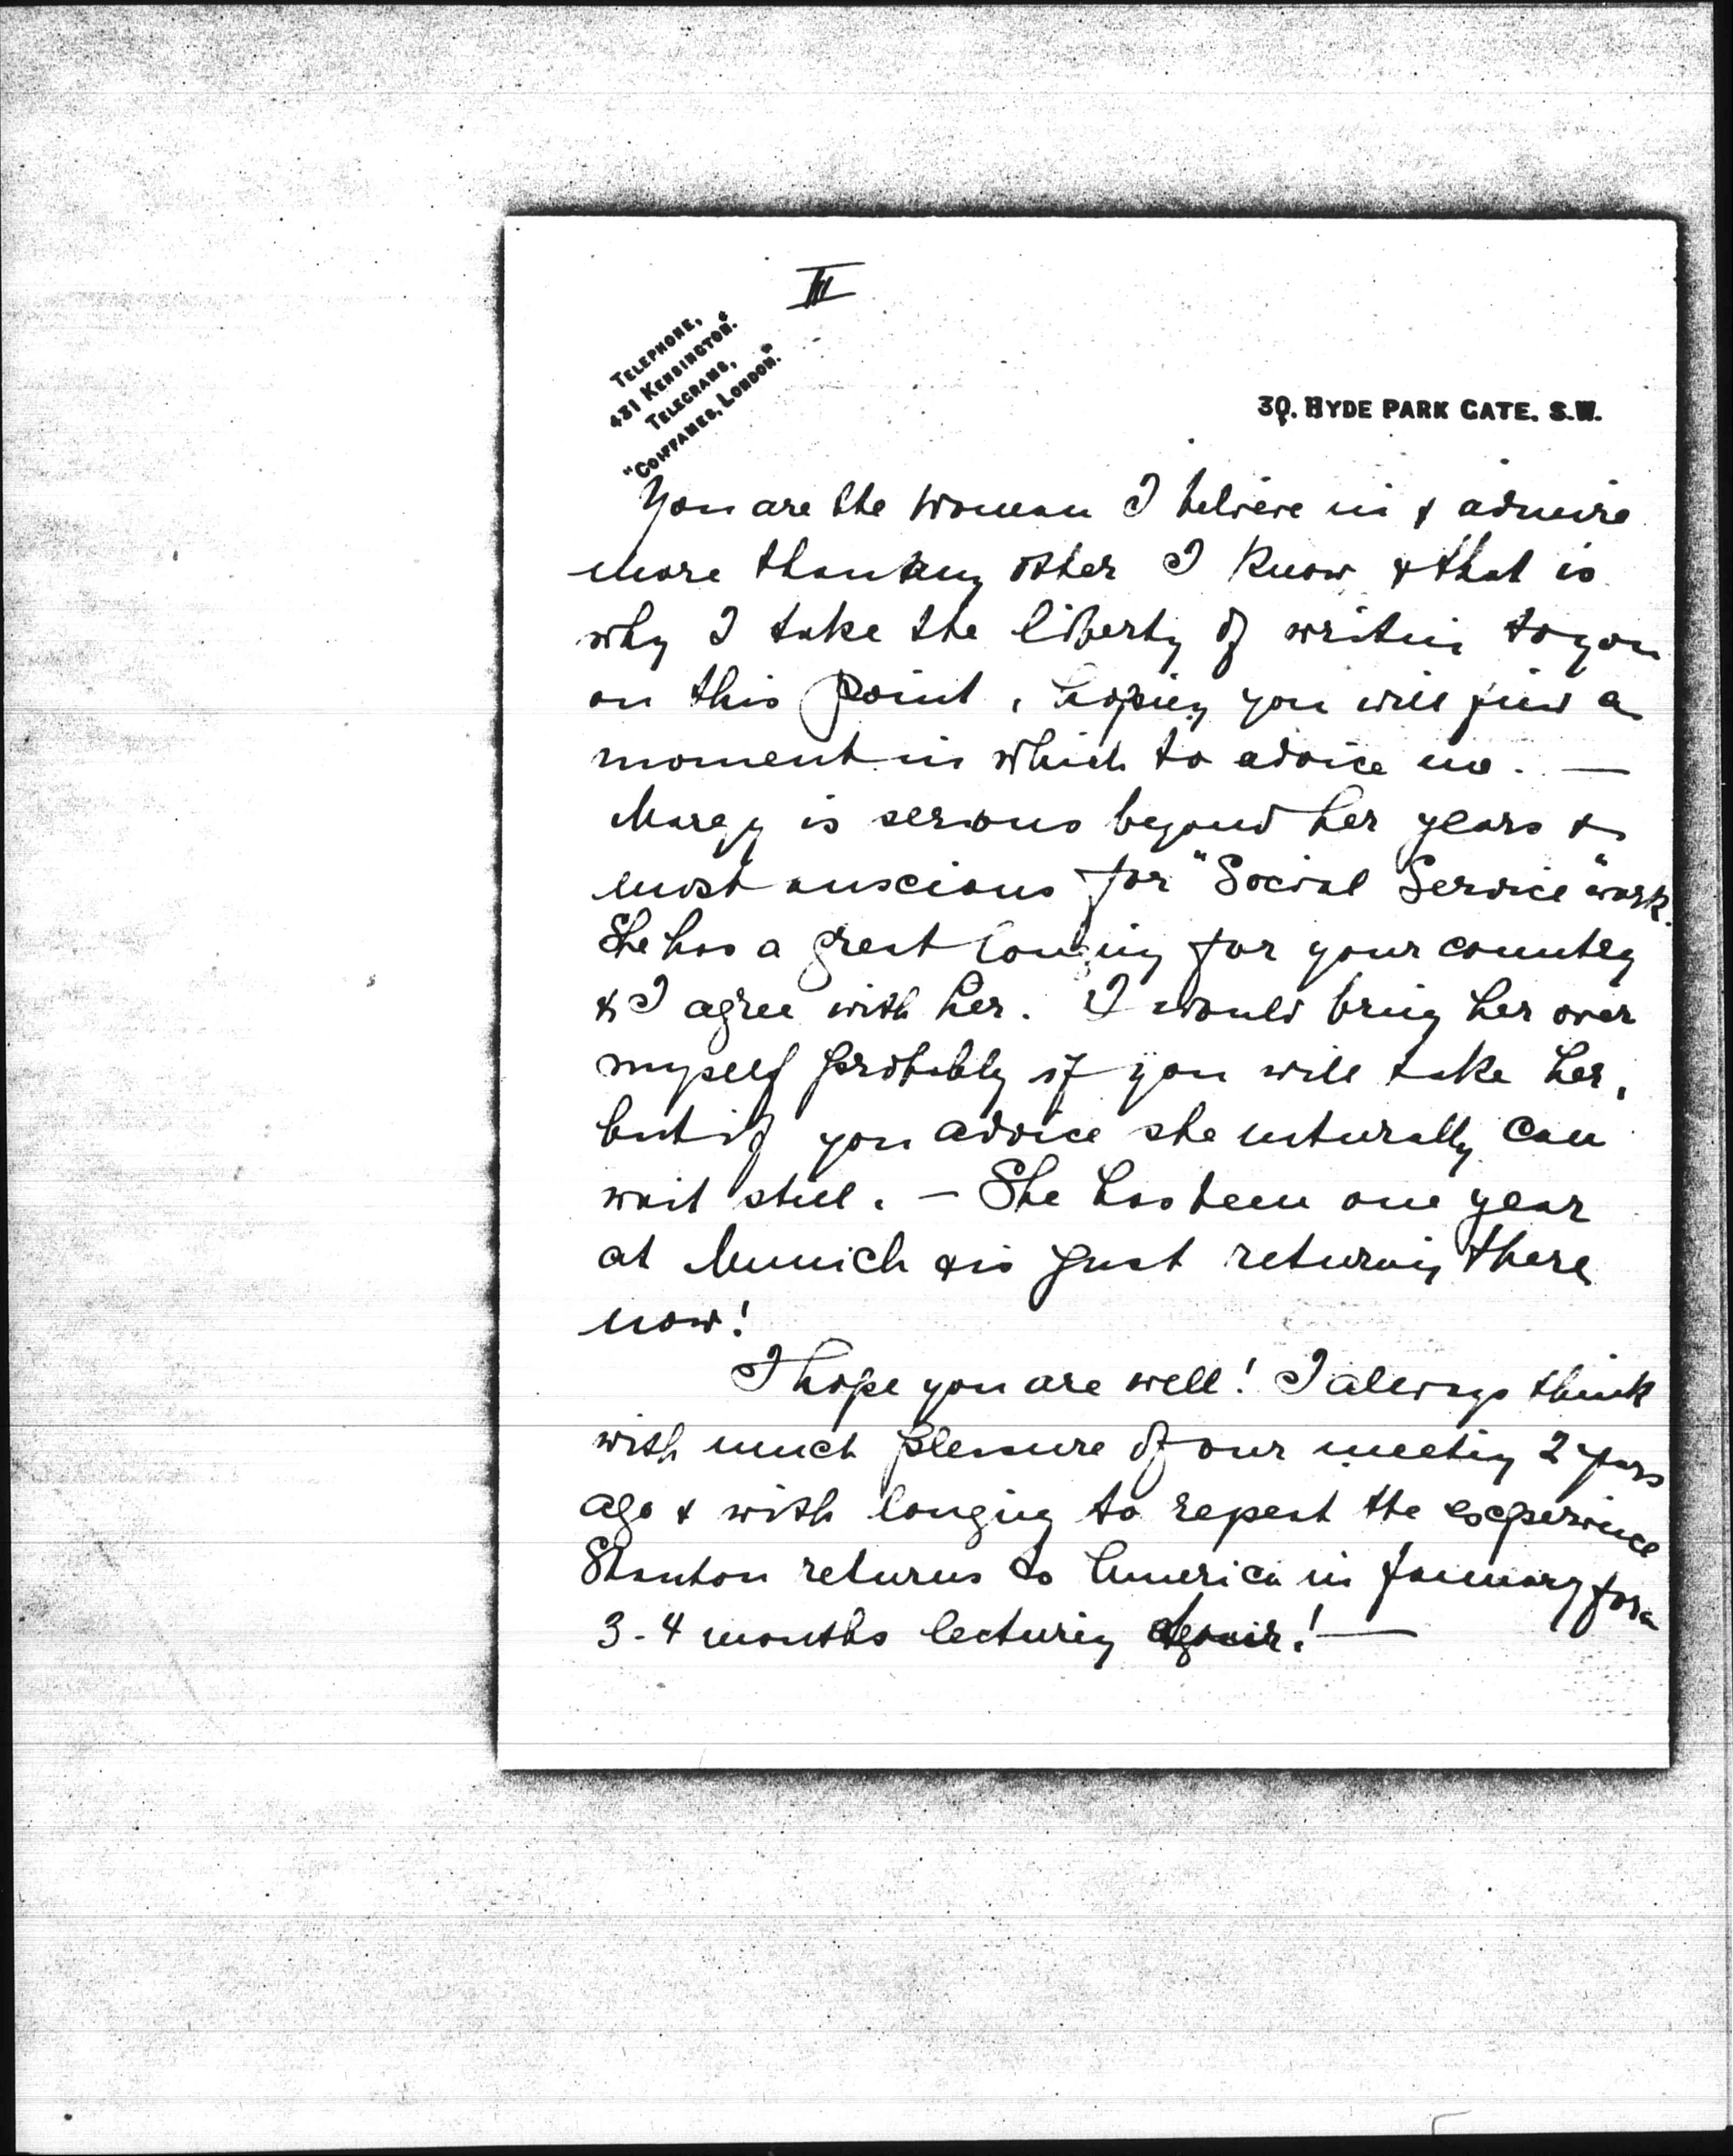 III
TELEPHONE,
431 KENSINGTON.
TELEGRAMS,
"COIFFAMES, LONDON."
30, HYDE PARK GATE. S.W.
You are the woman I believe in & admire
more than any other I know & that is
why I take the liberty of writing to you
on this point, hoping you will find a
moment in which to advice me. —
Margy is serious beyond her years &
most anscious for "Social Service" work.
She has a great longing for your country
& I agree with her. I would bring her over
myself probably if you will take her,
but if you advice she naturally can
wait still. — She has been one year
at Munich & is just returning there
now!
I hope you are well! I always think
with much pleasure of our meeting 2 years
ago & with longing to repeat the experience
Stanton returns to America in January for a
3-4 months lecturing again! —